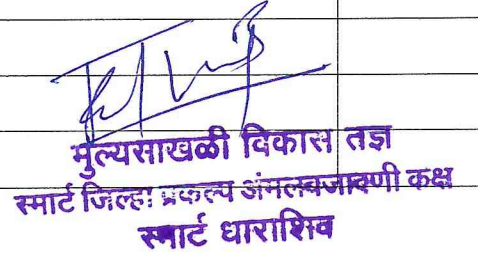 मुल्यसाखळी विकास तज्ञ
स्मार्ट जिल्हा प्रकल्प अंमलबजावणी कक्ष
स्मार्ट धाराशिव